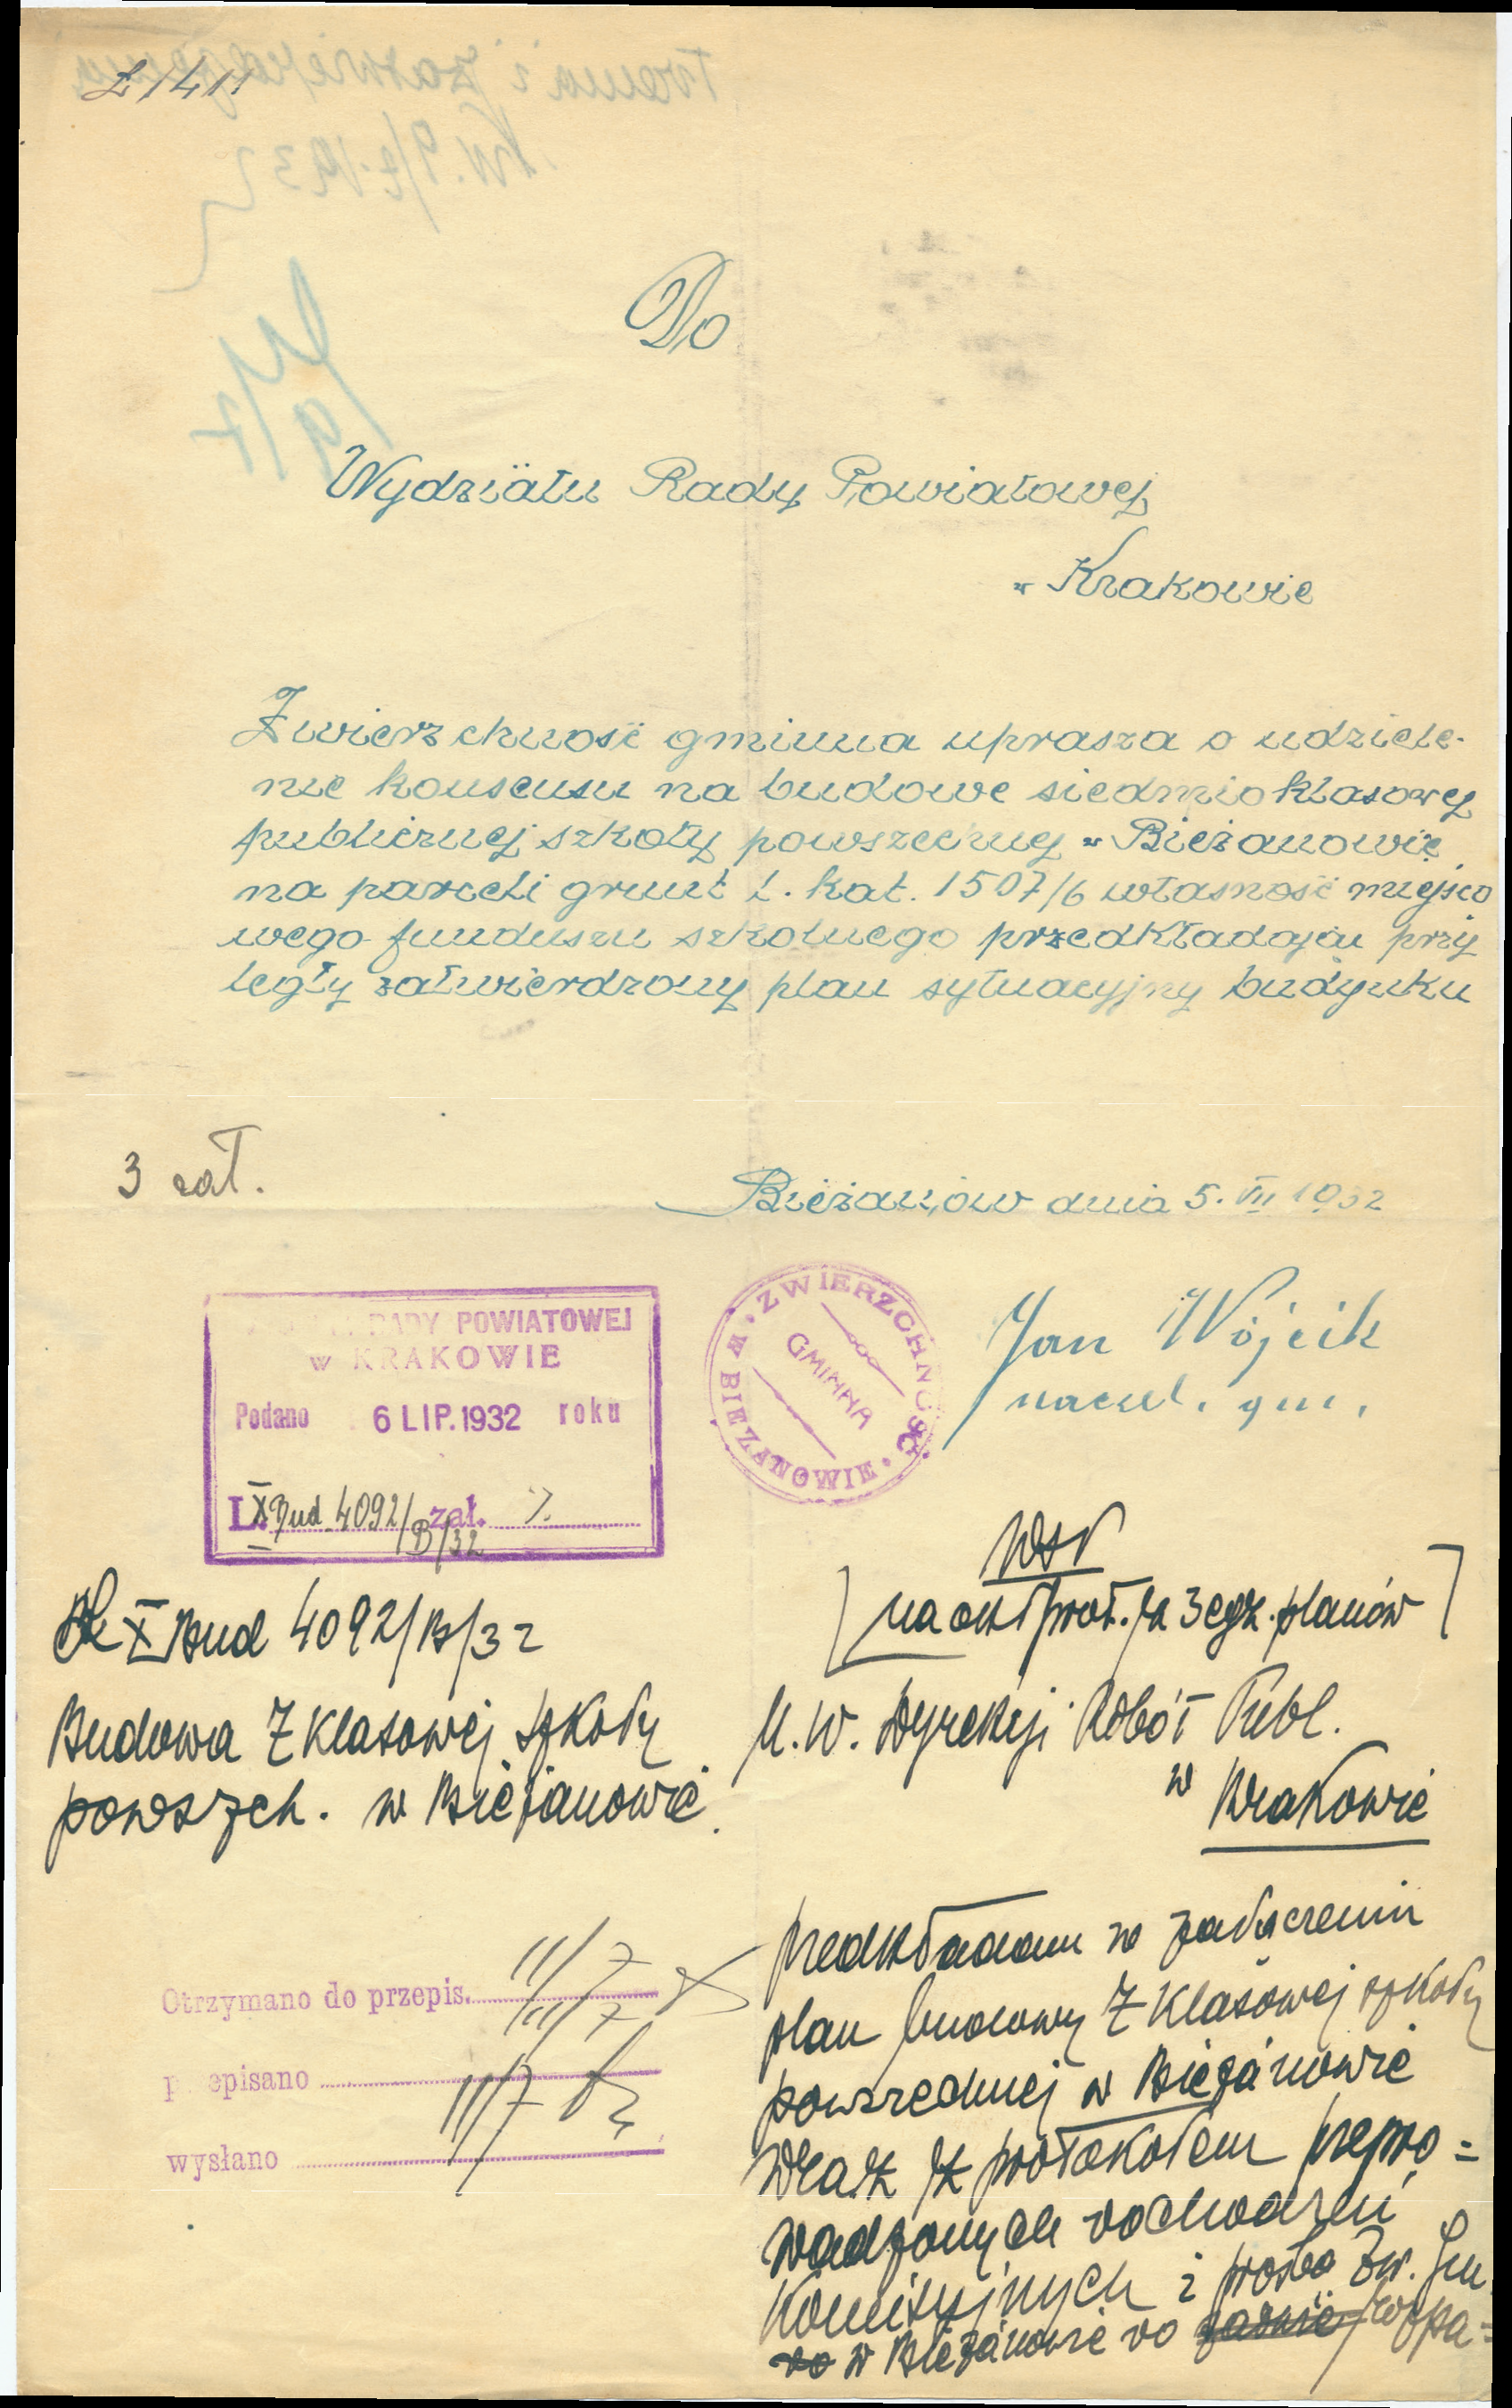 Do
Wydziału Rady Powiatowej
w Krakowie
Zwierzchność gminna uprasza o udziele-
nie konsensu na budowe siedmioklasowej
publicznej szkoły powszechnej w Bieżanowie
na parceli grunt l. kat. 1507/6 własność miejsco
wego funduszu szkolnego przedkładając przy
legły zatwierdzony plan sytuacyjny budynku
3 zał.
Bieżanów dnia 5. VII 1932
RADY POWIATOWEJ
w KRAKOWIE
Podano 6 LIP. 1932 roku
L. X Bud 4092/B/32 zał. 7.
ZWIERZCHNOŚĆ GMINNA W BIEZANOWIE
Jan Wójcik
naczel. gm.
X Bud 4092/B/32
Budowa 7 klasowej szkoły
powszech. w Bieżanowie.
na odst prot. z 3 egz. planów
U. W. Dyrekcji Robót Publ.
w Krakowie
przedkładam w załączeniu
plan budowy 7 klasowej szkoły
powszechnej w Bieżanowie
wraz z protokołem przepro=
wadzonych dochodzeń
komisyjnych i prośbą Zw. Gm.
w Bieżanowie do rozpa=
Otrzymano do przepis. 11/7
11/7
przepisano
wysłano 11/7